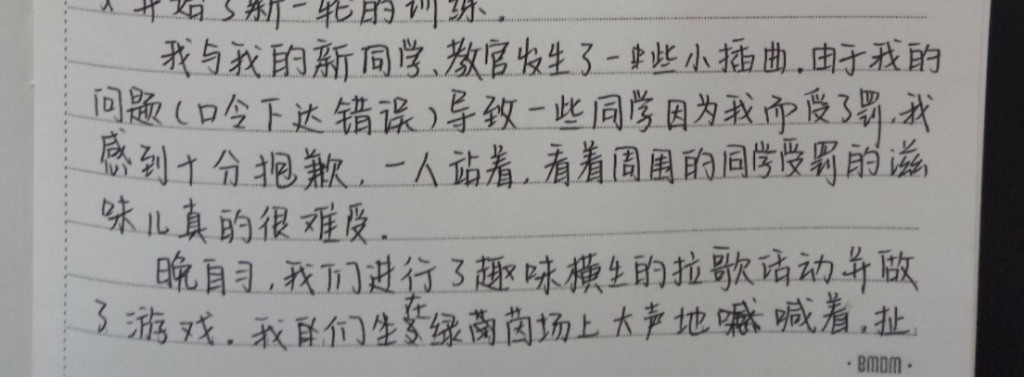 开始了新一轮的训练.
我与我的新同学、教官发生了一些小插曲.由于我的
问题(口令下达错误)导致一些同学因为我而受了罚.我
感到十分抱歉.一人站着,看着周围的同学受罚的滋
味儿真的很难受.
晚自习,我们进行了趣味横生的拉歌活动并做
了游戏.我们在绿茵场上大声地喊着,扯
·BMDM·